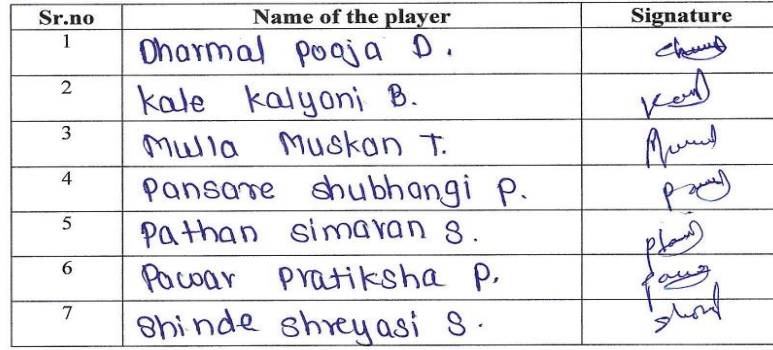 Sr.no Name of the player Signature
1 Dharmal pooja D.
2 kale kalyani B.
3 Mulla Muskan T.
4 Pansare shubhangi p.
5 Pathan simaran S.
6 Pawar Pratiksha P.
7 Shinde shreyasi S.